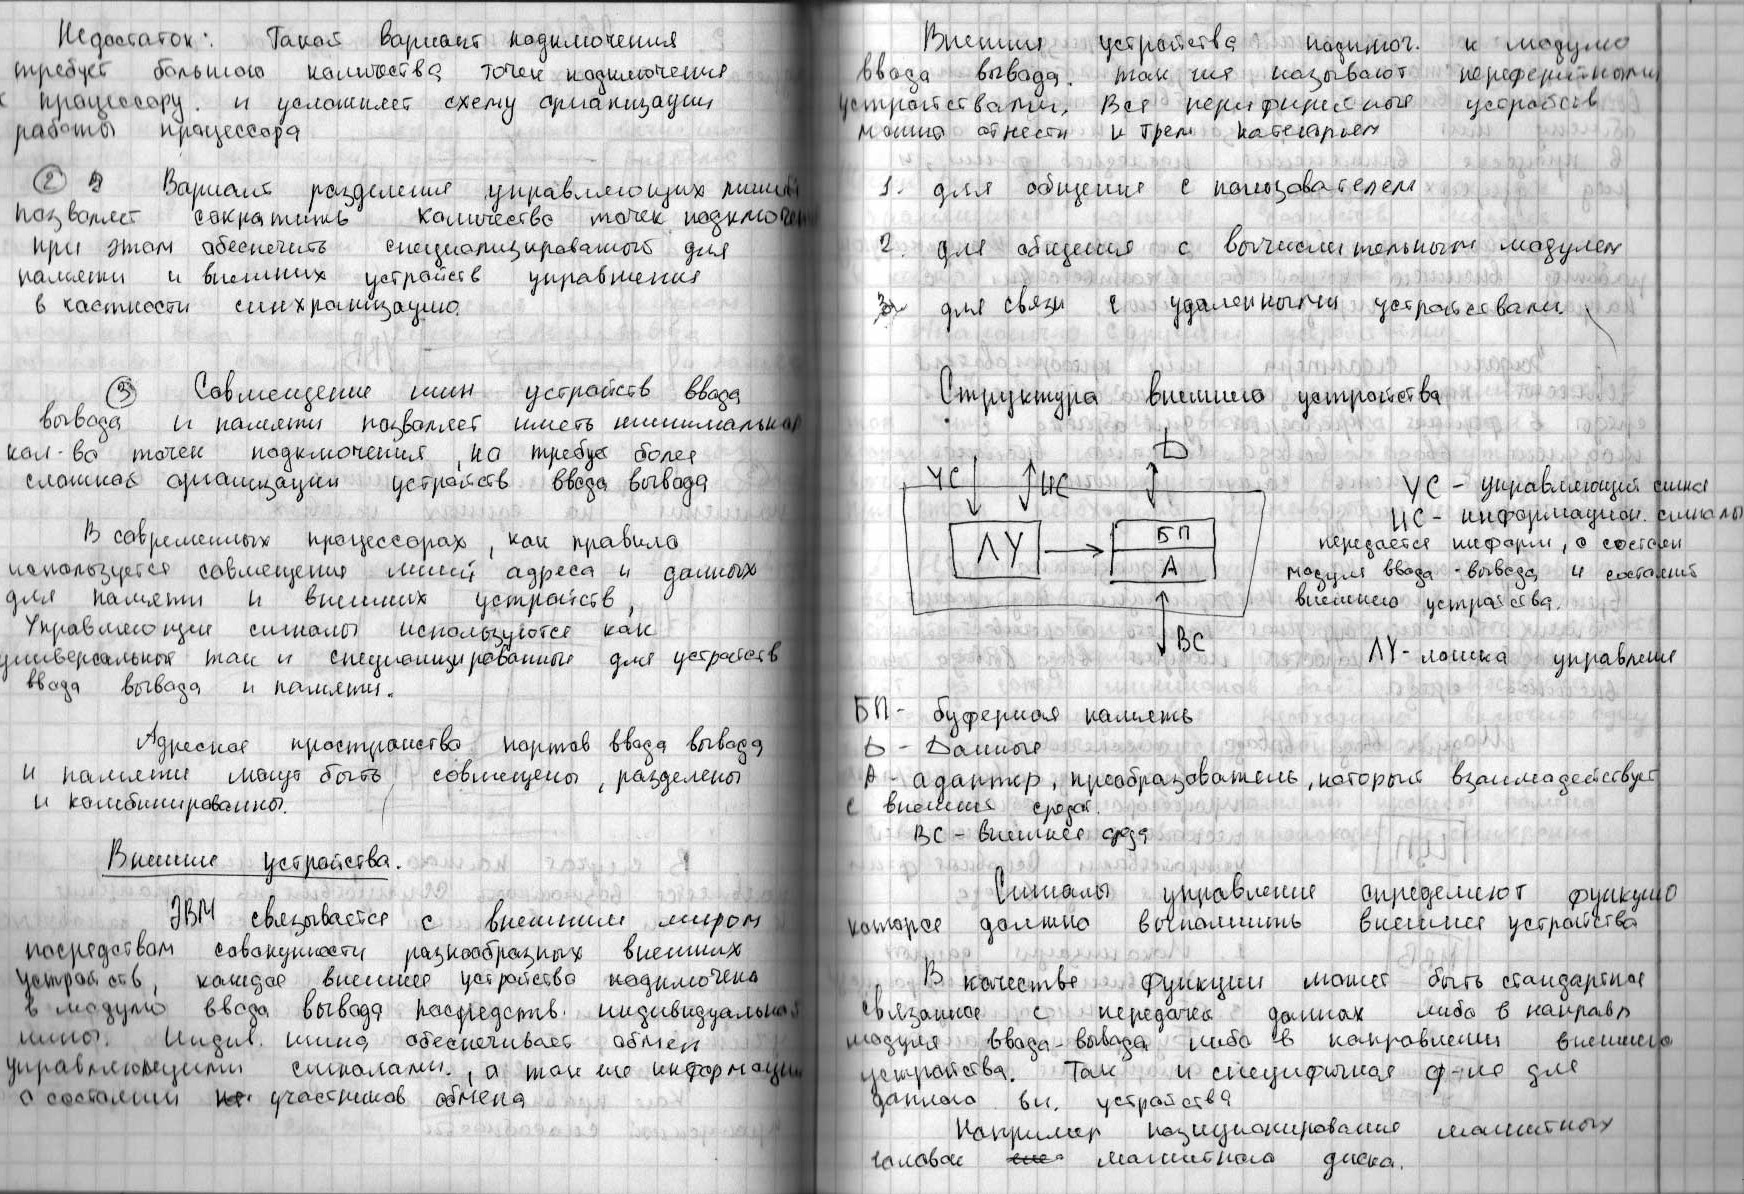 Недостаток: Такой вариант подключения
требует большого количества точек подключения
к процессору. и усложняет схему организации
работы процессора
② Вариант разделения управляющих линий
позволяет сократить количество точек подключен
при этом обеспечить специализированого для
памяти и внешних устройств управления
в частности синхронизацию.
③ Совмещение шин устройств ввода
вывода и памяти позволяет иметь минимальное
кол-во точек подключения, но требует более
сложной организации устройств ввода вывода
В современных процессорах, как правило
используется совмещение линий адреса и данных
для памяти и внешних устройств,
Управляющие сигналы используются как
универсальной так и специализированные для устройств
ввода вывода и памяти.
Адресное пространство портов ввода вывода
и памяти могут быть совмещены, разделены
и комбинированны.
Внешние устройства.
ЭВМ связывается с внешним миром
посредством совокупности разнообразных внешних
устройств, каждое внешнее устройство подключено
в модулю ввода вывода посредств. индивидуальной
шины. Индив. шина обеспечивает обмен
управляющими сигналами., а так же информации
о состоянии участников обмена
Внешние устройства подключ. к модулю
ввода вывода. так же называют переферийными
устройствами. Все периферийные устройств
можно отнести к трем категориям
1. для общения с пользователем
2. для общения с вычислительным модулем
3. для связи с удаленными устройствами
Структура внешнего устройства
D
УС ИС
ЛУ БП
А
ВС
УС - управляющий сигнал
ИС - информацион. сигналы
передается информ, о состоян
модуля ввода-вывода и состояний
внешнего устройства.
ЛУ - логика управления
БП - буферная память
D - Данные
А - адаптер, преобразователь, который взаимодействует
с внешней средой.
ВС - внешнее среда
Сигналы управление определяют функцию
которое должно выполнить внешнее устройства
В качестве функции может быть стандартная
связанное с передачей данных либо в направл
модуля ввода-вывода либо в направлении внешнего
устройства. Так и специфичная ф-ия для
данного вн. устройства
Например позиционирование магнитных
головок магнитного диска.